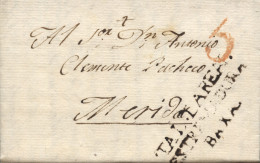 Al Sor Dn Antonio
Clemente Pacheco
6
Merida
TALLARE
ESTREMADURA
BAXA